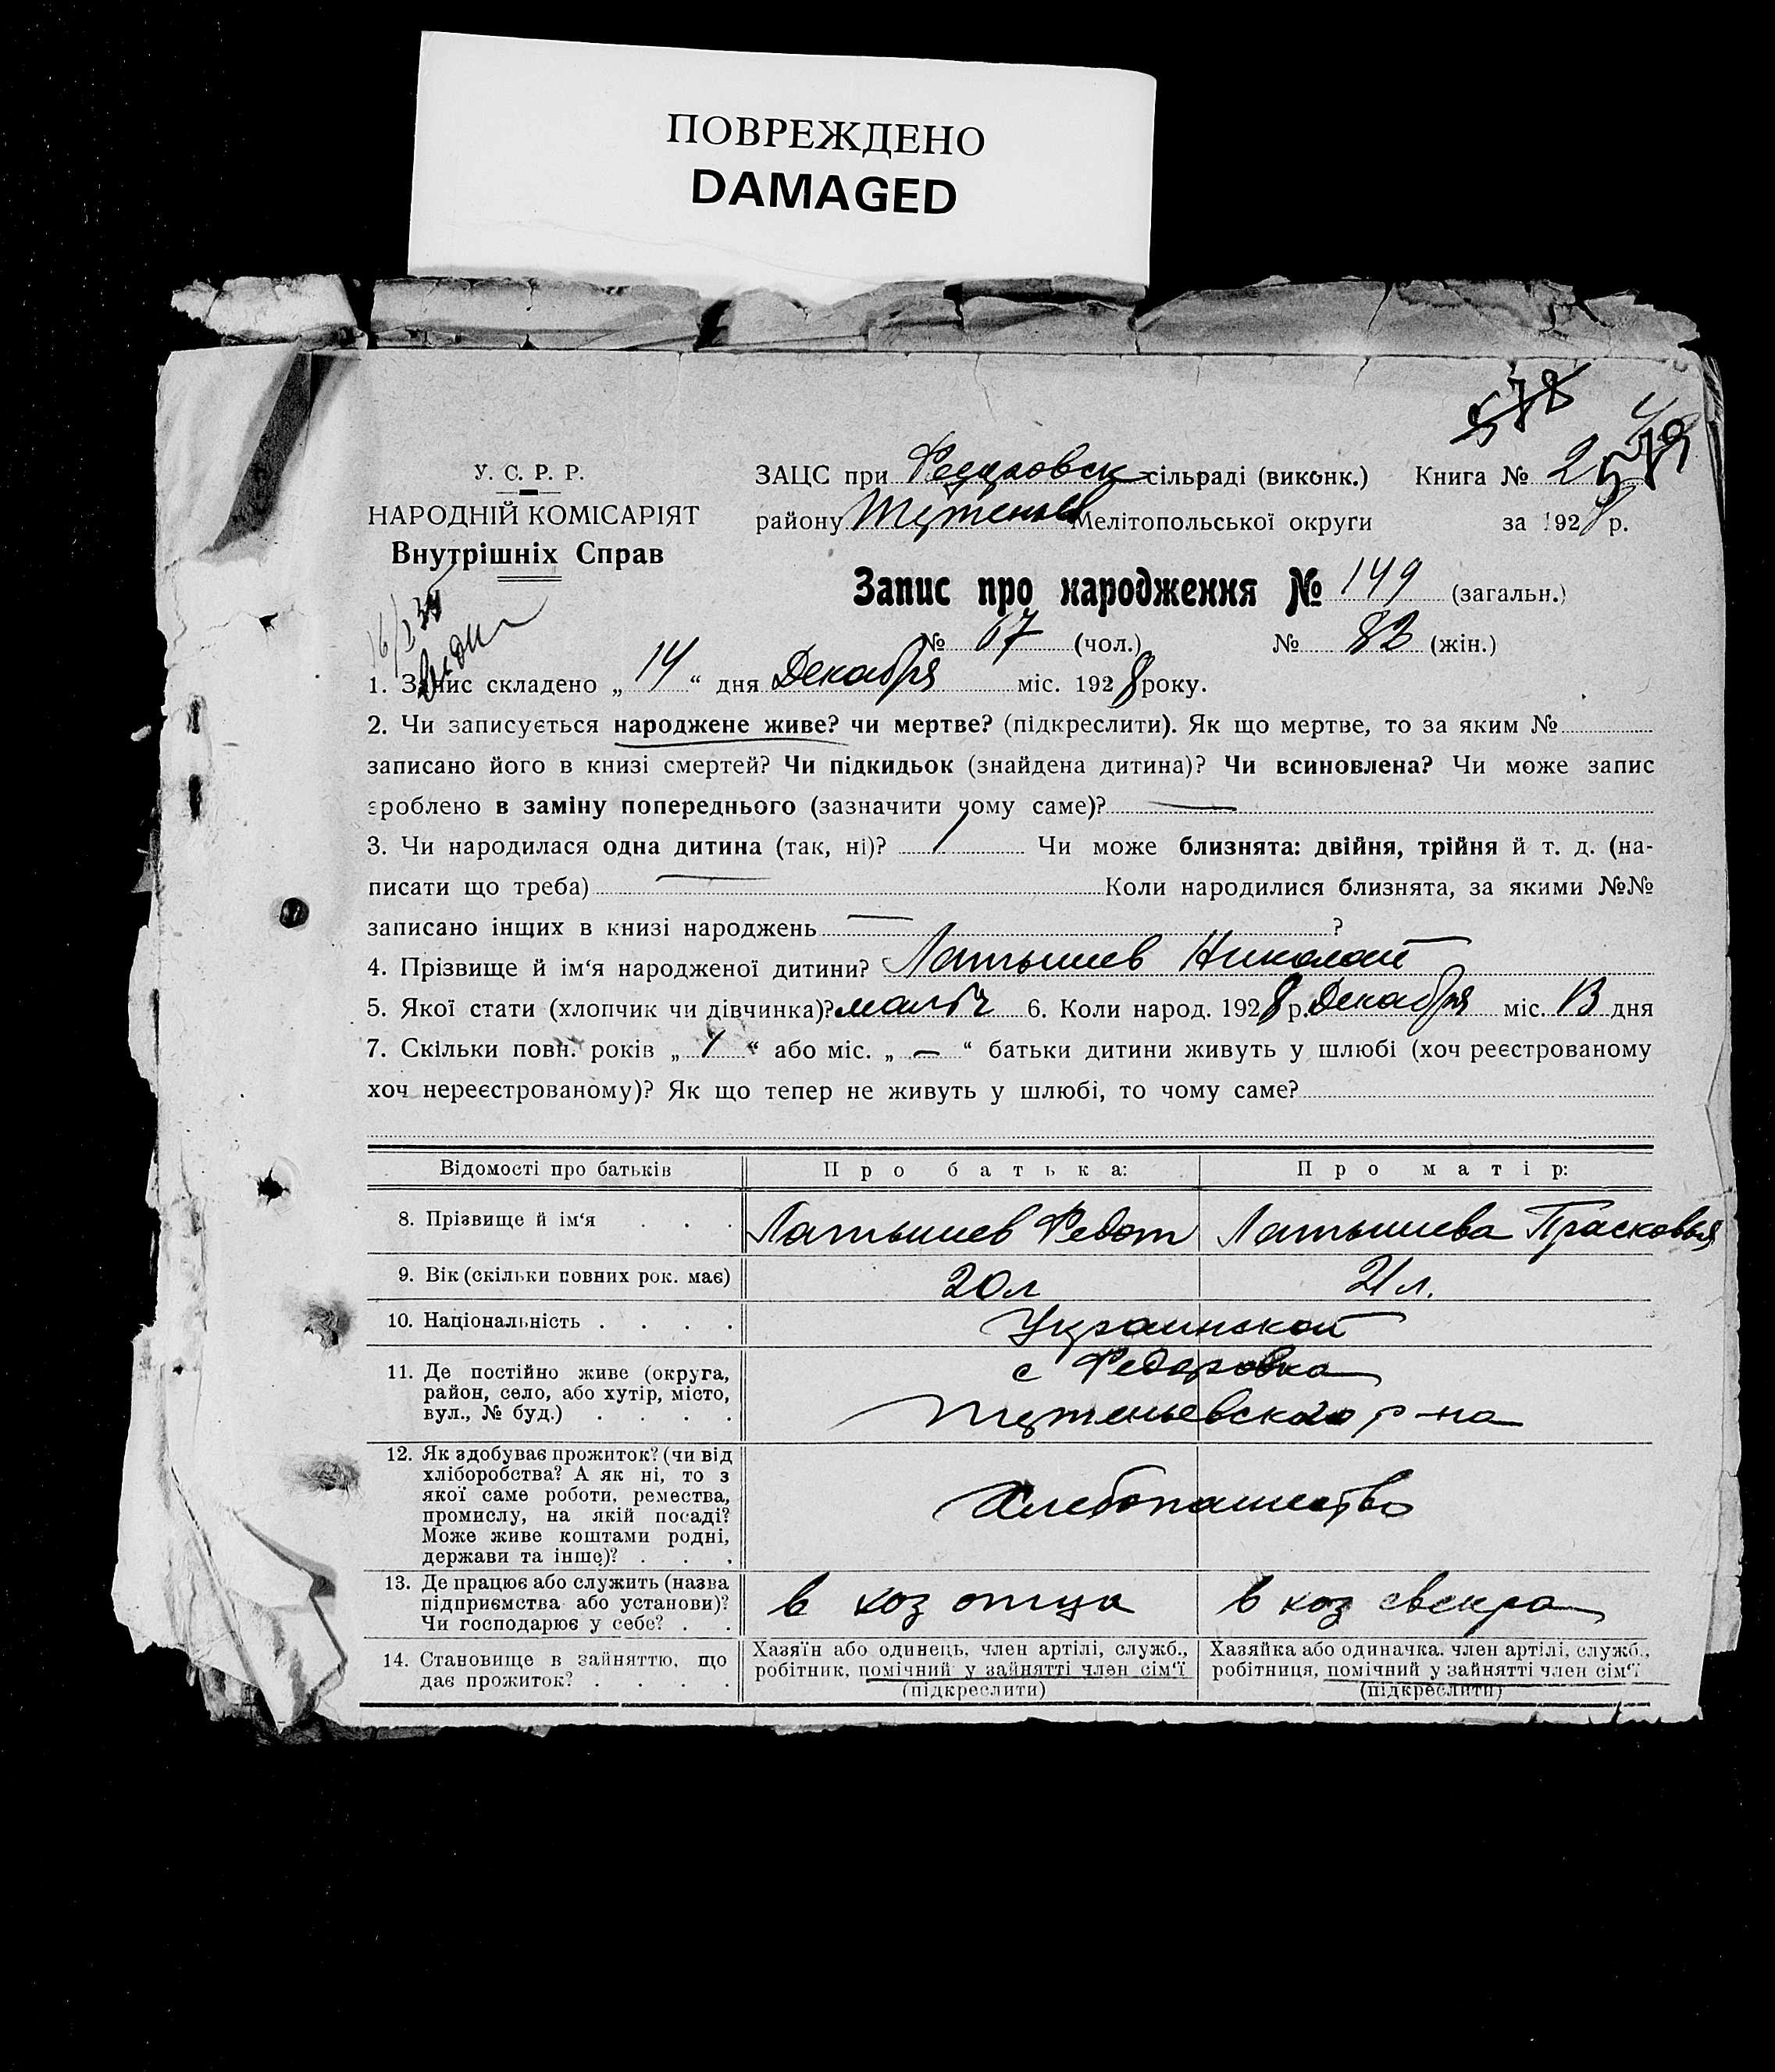 ПОВРЕЖДЕНО
DAMAGED
578
579
У. С. Р. Р.
НАРОДНІЙ КОМІСАРІЯТ
Внутрішніх Справ
ЗАЦС при Федоровск сільраді (виконк.) Книга № 2
району Мелітопольської округи за 1928 р.
Запис про народження № 149 (загальн.)
№ 67 (чол.) № 82 (жін.)
1. Запис складено „ 14 “ дня Декабря міс. 1928 року.
2. Чи записується народжене живе? чи мертве? (підкреслити). Як що мертве, то за яким №
записано його в книзі смертей? Чи підкидьок (знайдена дитина)? Чи всиновлена? Чи може запис
зроблено в заміну попереднього (зазначити чому саме)? —
3. Чи народилася одна дитина (так, ні)? 1 Чи може близнята: двійня, трійня й т. д. (на-
писати що треба) — Коли народилися близнята, за якими №№
записано інщих в книзі народжень — ?
4. Прізвище й ім‘я народженої дитини? Латышев Николай
5. Якої стати (хлопчик чи дівчинка)? мальч 6. Коли народ. 1928 р. Декабря міс. 13 дня
7. Скільки повн. років „ 1 “ або міс. „ — “ батьки дитини живуть у шлюбі (хоч реєстрованому
хоч нереєстрованому)? Як що тепер не живуть у шлюбі, то чому саме?
Відомості про батьків Про батька: Про матір:
8. Прізвище й ім‘я . . . Латышев Федот Латышева Прасковья
9. Вік (скільки повних рок. має) 20 л 21 л.
10. Національність . . . . Украинской
11. Де постійно живе (округа, с Федоровка
район, село, або хутір, місто,
вул., № буд.) . . . . р-на
12. Як здобуває прожиток? (чи від
хліборобства? А як ні, то з
якої саме роботи, ремества,
промислу, на якій посаді? Хлебопашество
Може живе коштами родні,
держави та інше)? . . .
13. Де працює або служить (назва
підприємства або установи)? в хоз отца в хоз свекра
Чи господарює у себе? . .
14. Становище в зайняттю, що
дає прожиток? . . . .
Хазяїн або одинець, член артілі, служб.,
робітник, помічний у зайнятті член сім‘ї
(підкреслити)
Хазяйка або одиначка, член артілі, служб.,
робітниця, помічний у зайнятті член сім‘ї
(підкреслити)